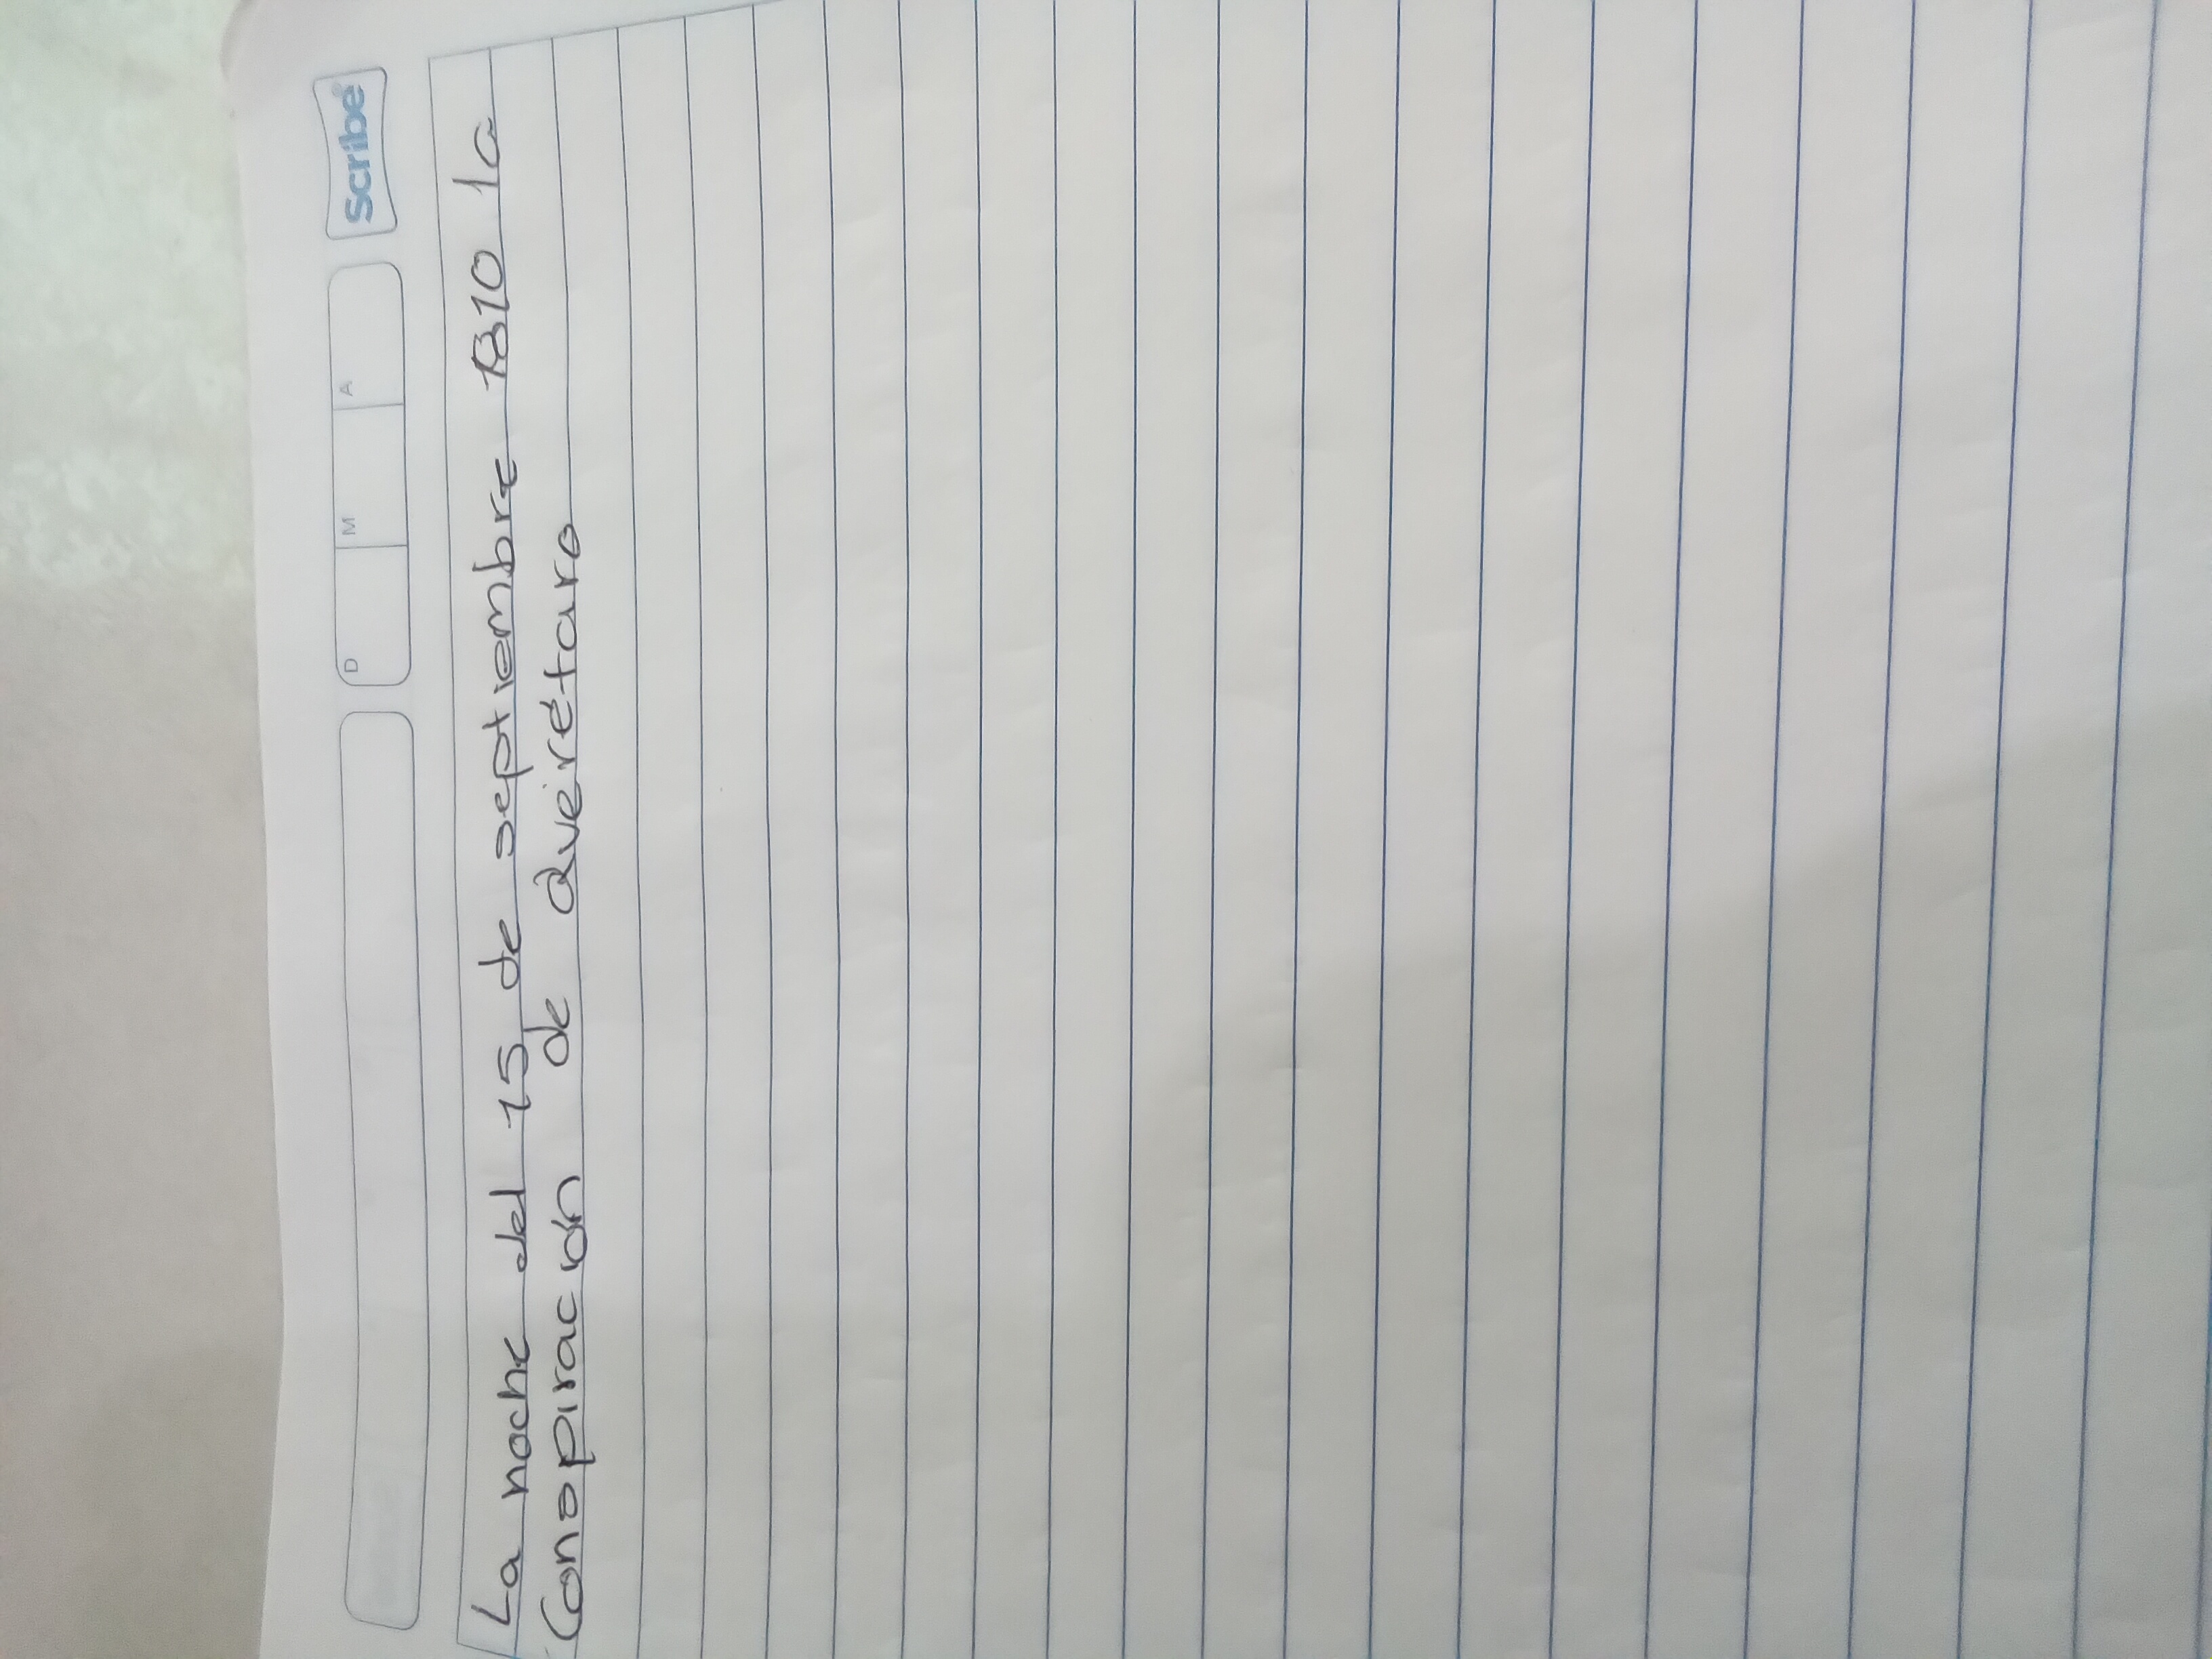 Scribe
D M A
La noche del 15 de septiembre 1810 la
Conspiración de Querétaro